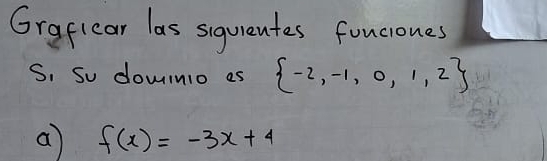 Graficar las siguientes funciones
Si su dominio es {-2, -1, 0, 1, 2}
a) f(x) = -3x + 4